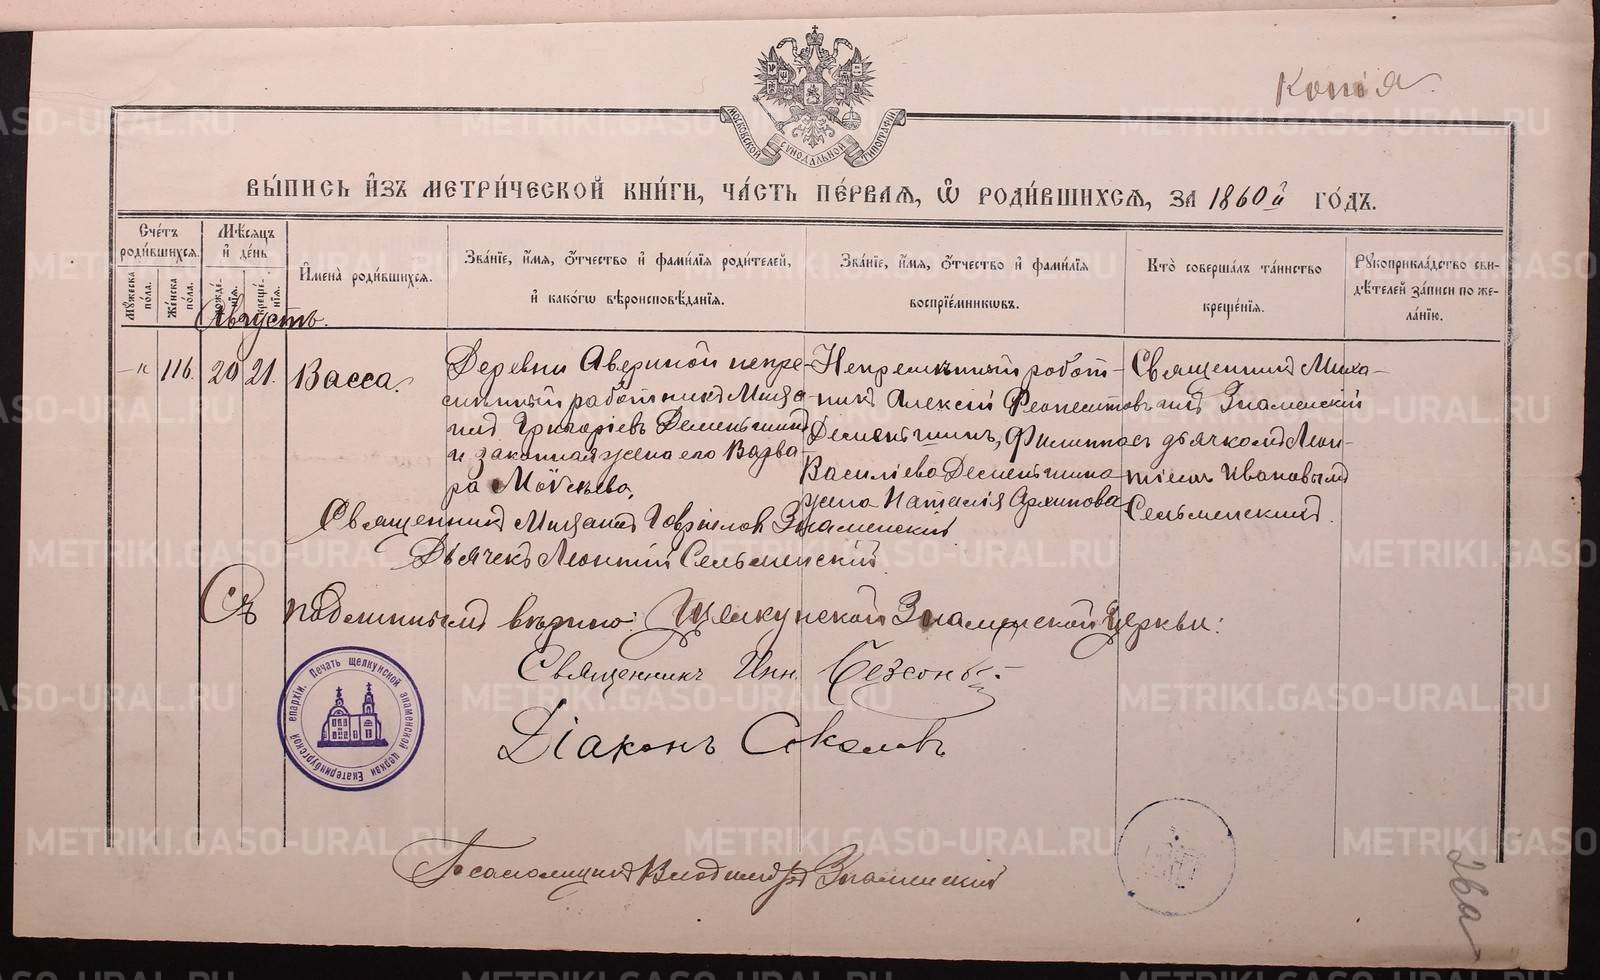 Копія.
МОСКОВСКОЙ СѴНОДАЛЬНОЙ ТИПОГРАФІИ
ВЫ́ПИСЬ И҆ЗЪ МЕТРИ́ЧЕСКОЙ КНИ́ГИ, ЧА́СТЬ ПЕ́РВАЯ, Ѽ РОДИ́ВШИХСЯ, ЗА 1860й ГО́ДЪ.
Сче́тъ роди́вшихся.
Мꙋ́жеска по́ла.
Же́нска по́ла.
Мѣ́сяцъ и҆ де́нь
рожде́нїя.
креще́нїя.
И҆мена̀ роди́вшихся.
Зва́нїе, и҆́мя, ѻ҆́тчество и҆ фами́лїя роди́телей, и҆ како́гѡ вѣроисповѣ́данїя.
Зва́нїе, и҆́мя, ѻ҆́тчество и҆ фами́лїя воспрїе́мникѡвъ.
Кто̀ соверша́лъ та́инство креще́нїя.
Рꙋкоприкла́дство свидѣ́телей за́писи по жела́нїю.
Августъ.
—"
116.
20
21.
Васса.
Деревни Авериной непре-
мѣнный работникъ Миха-
илъ Григоріевъ Дементьинъ
и законная жена его Варва-
ра Моѵсеева,
Непремѣнный работ-
никъ Алексій Феопентовъ
Дементьинъ, Филиппа
Василіева Дементьина
жена Наталія Архипова
Священникъ Миха-
илъ Знаменскій
съ дьячкомъ Леон-
тіемъ Ивановымъ
Сельменскимъ.
Священникъ Михаилъ Гавріиловъ Знаменскій
Дьячекъ Леонтій Сельменскій
Съ подлиннымъ вѣрно: Щелкунской Знаменской Церкви:
Священникъ Инн.
Діаконъ Соколовъ
Печать щелкунской знаменской церкви Екатеринбургской епархіи.
Псаломщикъ Владиміръ Знаменскій
METRIKI.GASO-URAL.RU